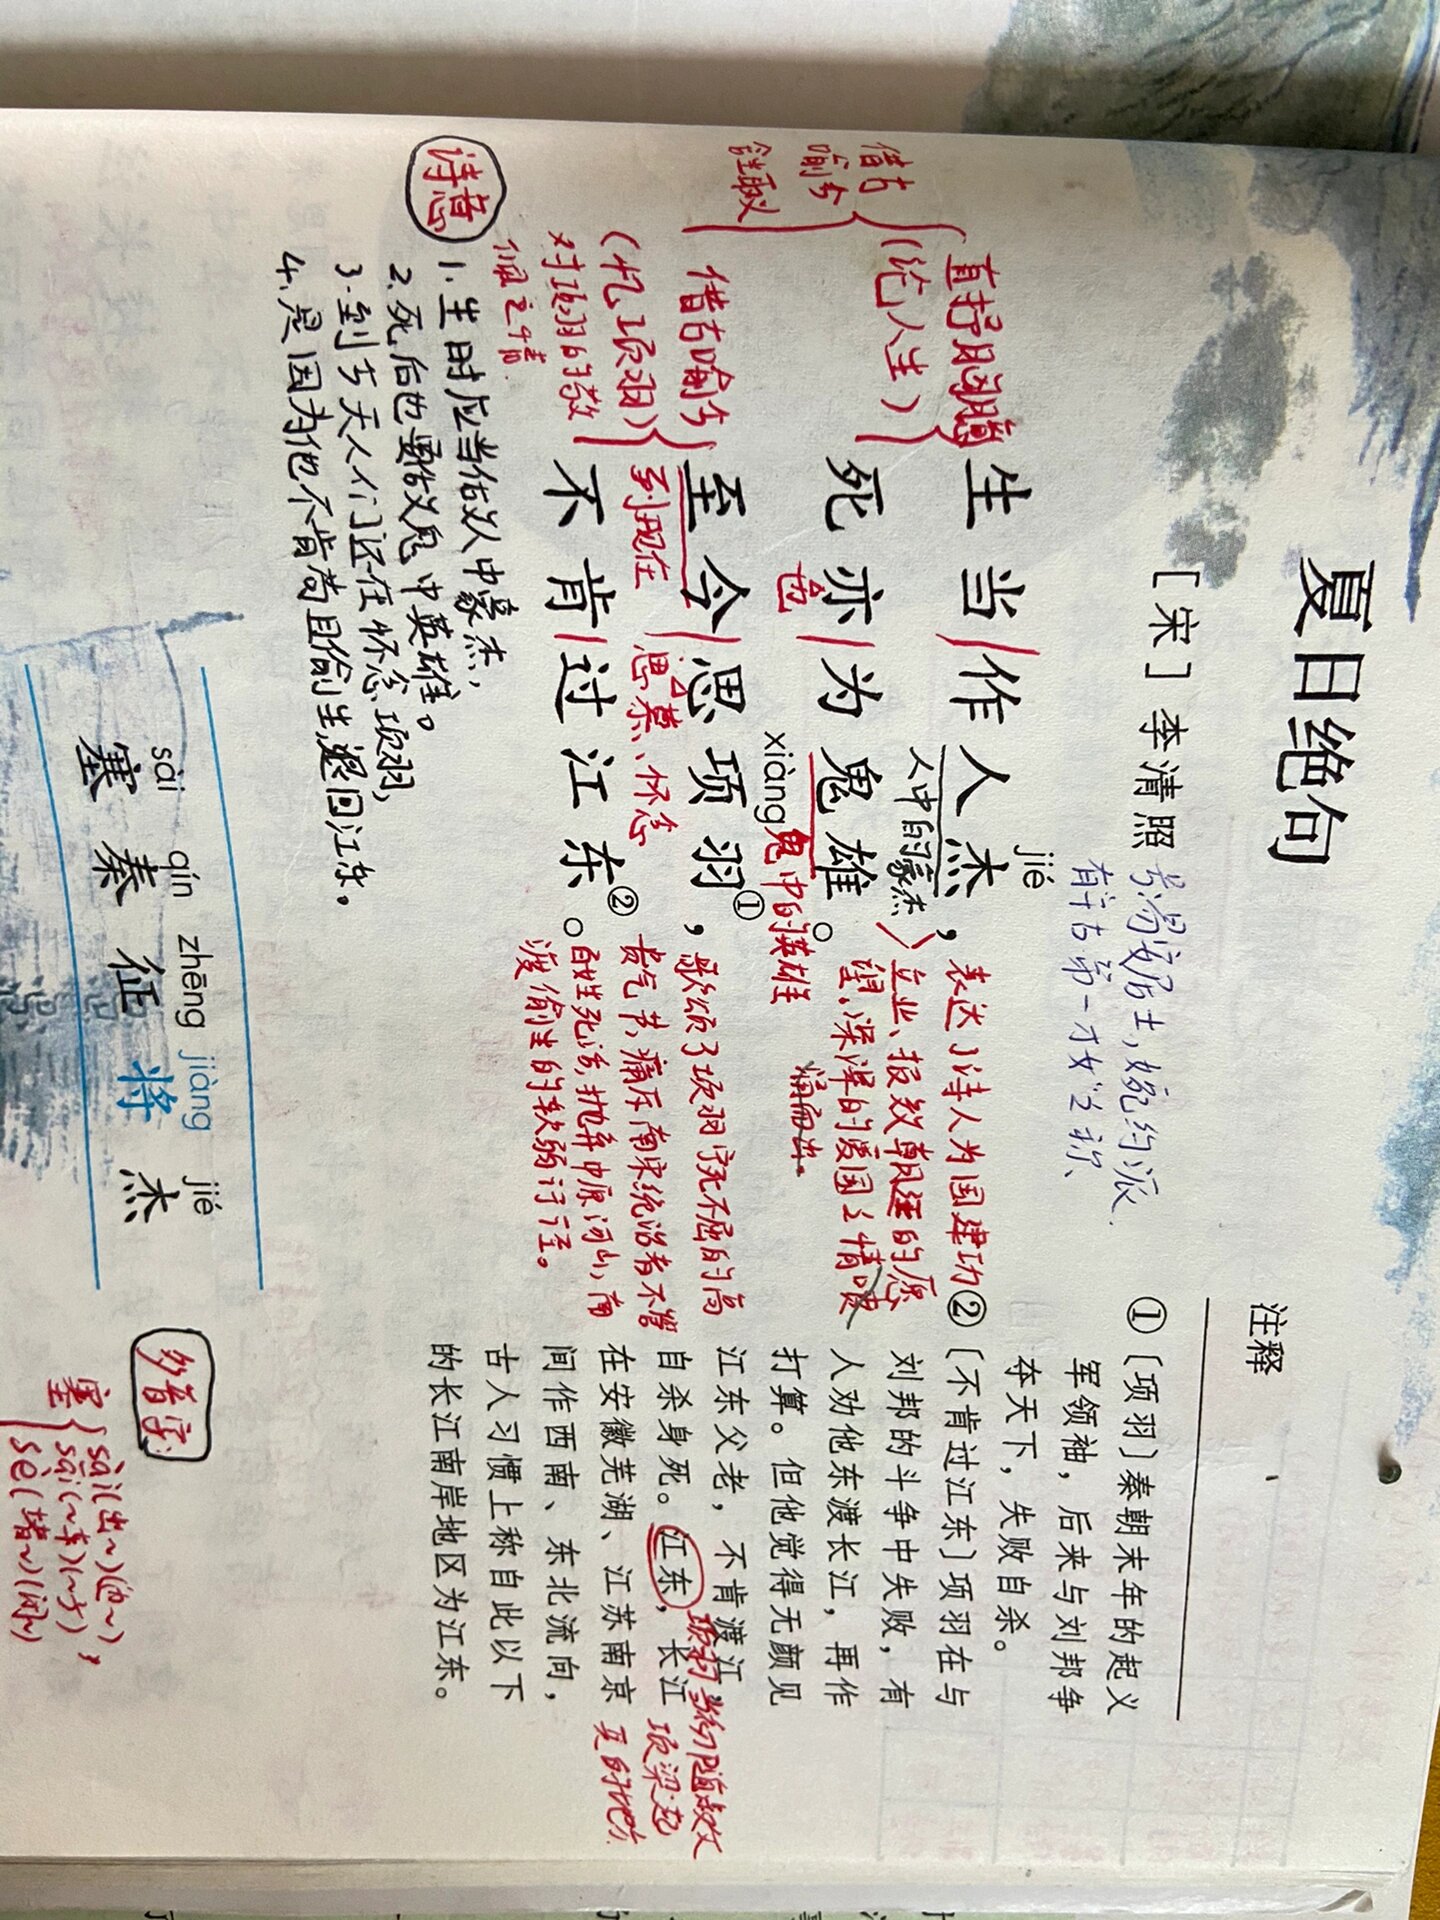 夏日绝句
[宋] 李清照
号易安居士，婉约派.
有“千古第一才女”之称、
jié
生当/作人杰，
人中的豪杰
死亦/为鬼雄。
也
鬼中的英雄
xiàng
至今/思项羽①，
到现在
思慕、怀念
不肯/过江东②。
直抒胸臆
(论人生)
借古喻今
(忆项羽)
对项羽的敬
佩之情
借古
喻今
表达了诗人为国建功
立业、报效朝廷的愿
望，深深的爱国之情喷
涌而出。
歌颂了项羽宁死不屈的高
贵气节，痛斥南宋统治者不管
百姓死活，抛弃中原河山，南
渡偷生的软弱行径。
诗意
1. 生时应当做人中豪杰，
2. 死后也要做鬼中英雄。
3. 到今天人们还在怀念项羽，
4. 是因为他不肯苟且偷生，退回江东。
sài qín zhēng jiàng jié
塞 秦 征 将 杰
注释
①〔项羽〕秦朝末年的起义
军领袖，后来与刘邦争
夺天下，失败自杀。
②〔不肯过江东〕项羽在与
刘邦的斗争中失败，有
人劝他东渡长江，再作
打算。但他觉得无颜见
江东父老，不肯渡江，
自杀身死。江东，长江
在安徽芜湖、江苏南京
间作西南、东北流向，
古人习惯上称自此以下
的长江南岸地区为江东。
项羽当初随叔父
项梁起
兵的地方
多音字
塞
sài(出~)(边~)
sāi(~车)(~子)
sè(堵~)(闭~)